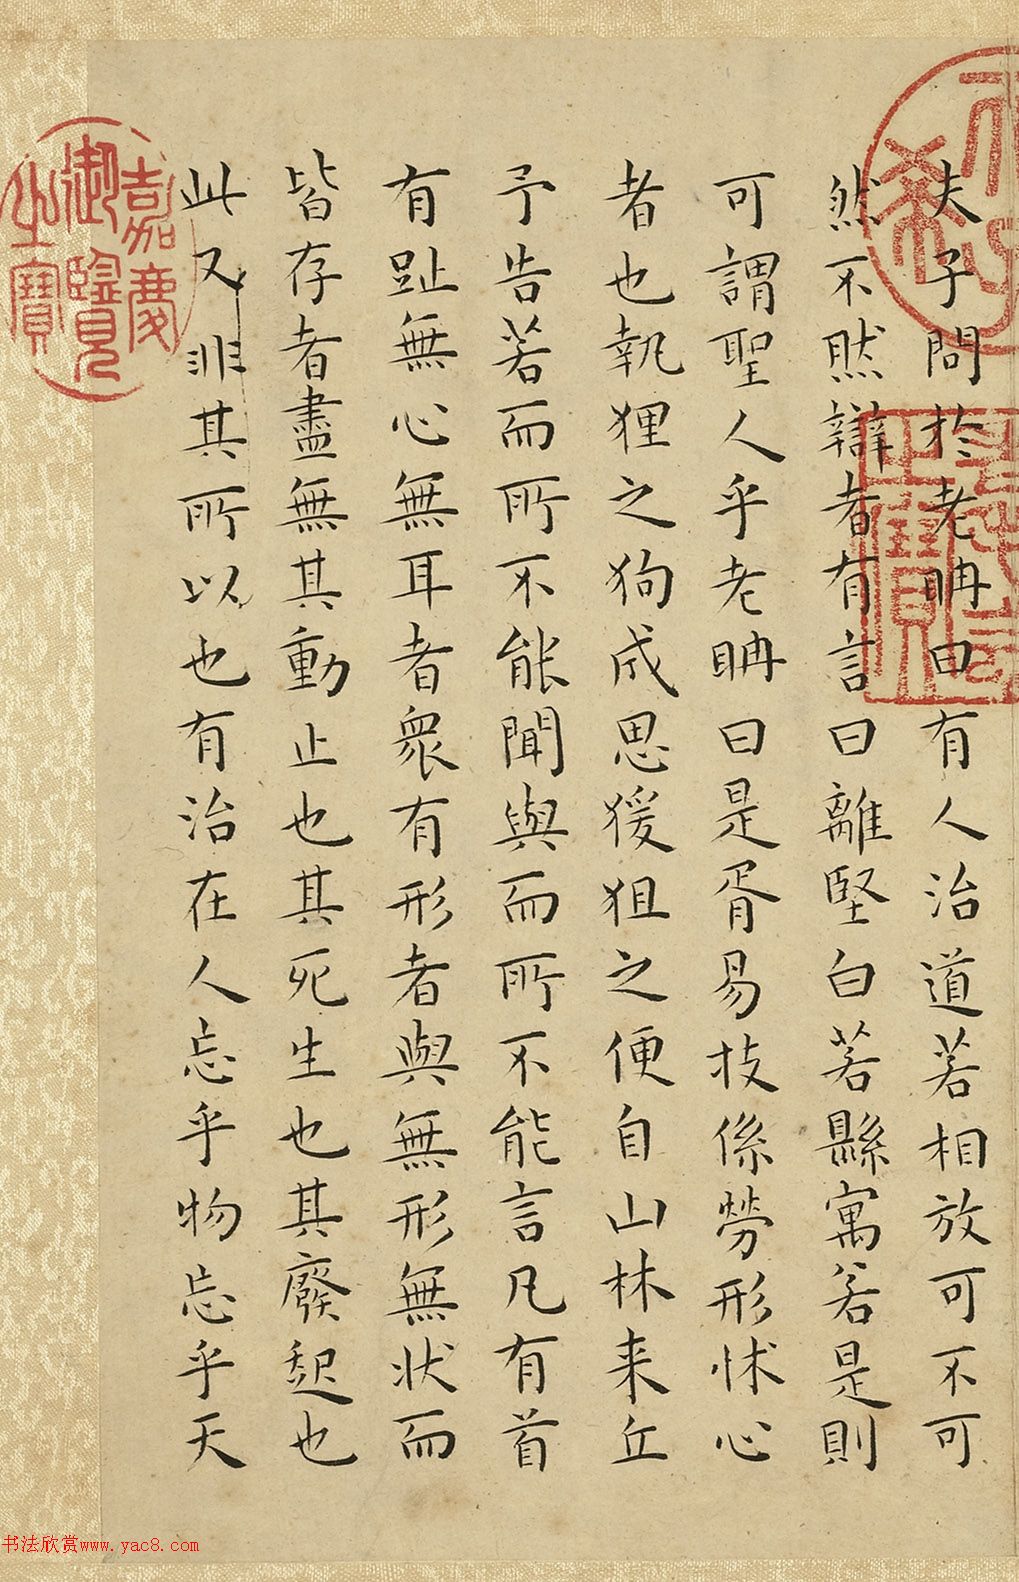 夫子問於老聃曰有人治道若相放可不可
然不然辯者有言曰離堅白若縣寓若是則
可謂聖人乎老聃曰是胥易技係勞形怵心
者也執狸之狗成思猨狙之便自山林来丘
予告若而所不能聞與而所不能言凡有首
有趾無心無耳者衆有形者與無形無状而
皆存者盡無其動止也其死生也其廢起也
此又非其所以也有治在人忘乎物忘乎天
嘉慶
御覽
之寶
书法欣赏www.yac8.com